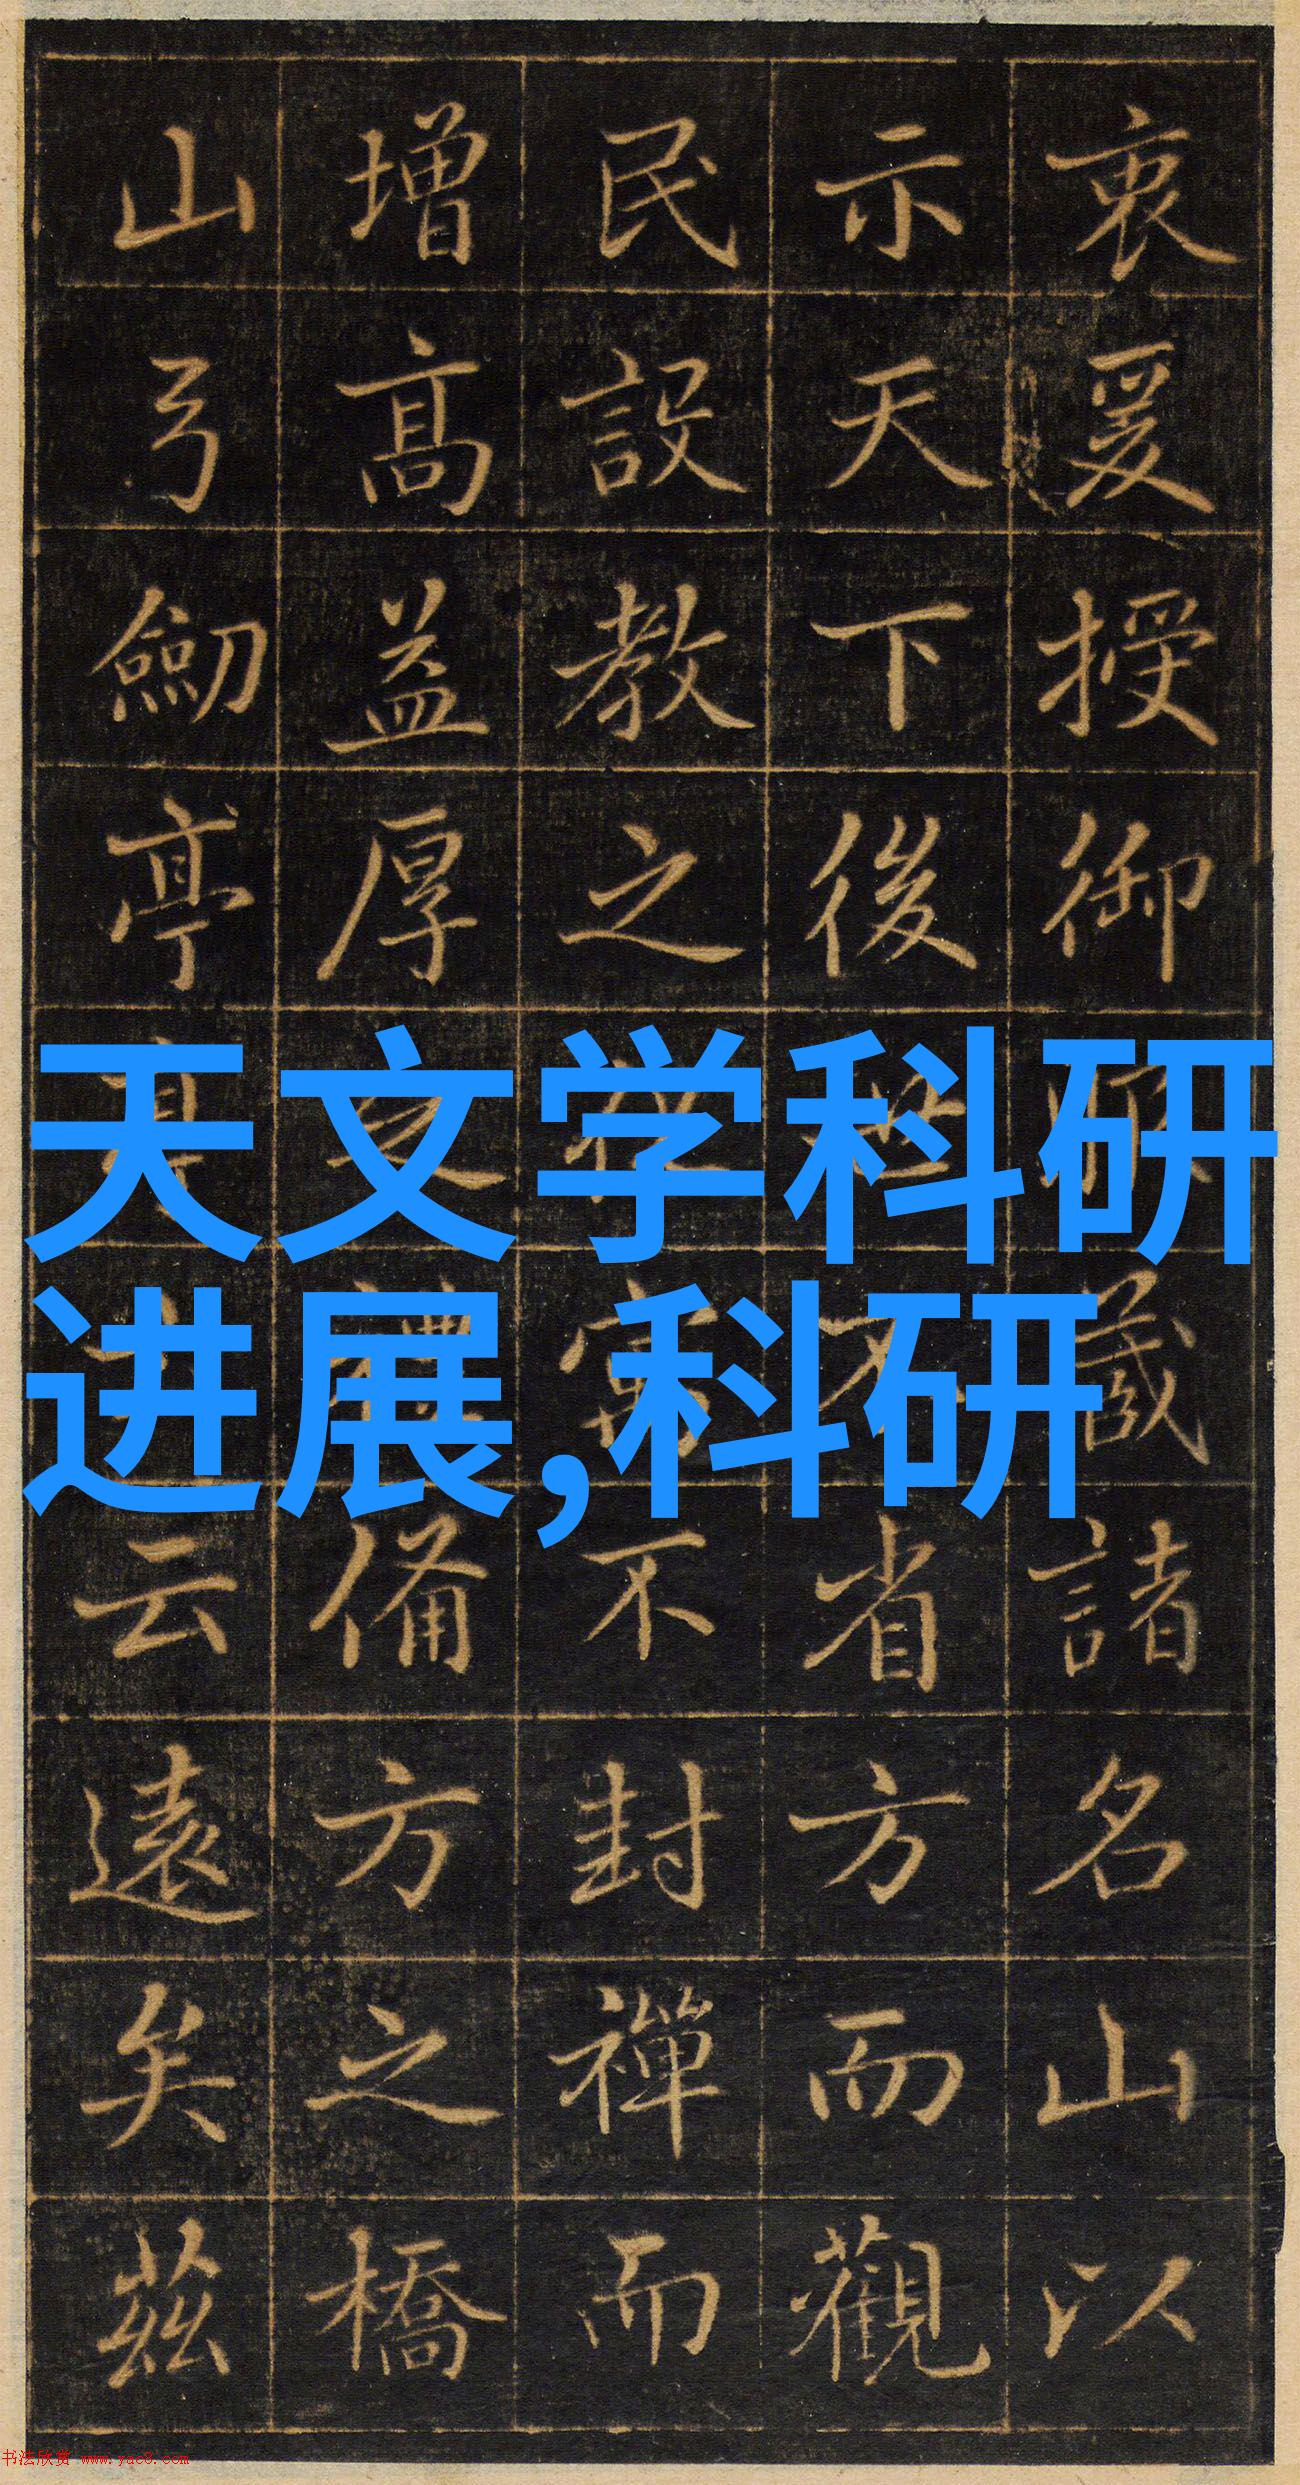 衷爰授御藏諸名山以
示天下後世省方而觀
民設教之不封禪而
增高益厚之備方之橋
山弓劒亭云遠矣茲
天文学科研
进展,科研
书法欣赏 www.yac8.com